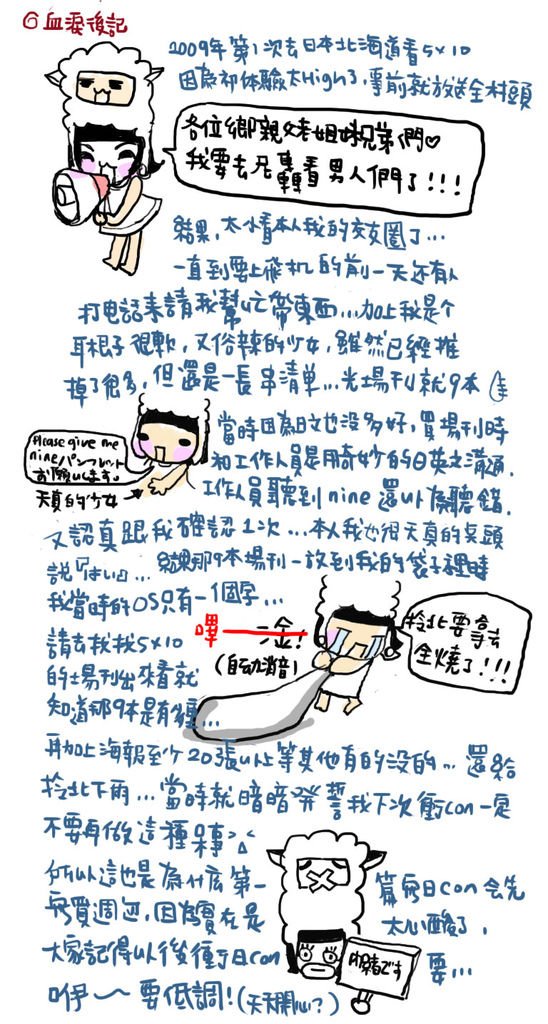 ⑥血淚後記
2009年第1次去日本北海道看5x10
因為初體驗太High了,事前就放送全村頭
各位鄉親父老姐妹兄弟們♡
我要去看男人們了!!!
結果,太小看本人我的交友圈了...
一直到要上飛机的前一天还有人
打电話來請我幫忙帶東西...加上我是个
耳根子很軟,又俗辣的少女,雖然已經推
掉了很多,但還是一長串清單...光場刊就9本
Please give me
nineパンフレット
お願いします。
天真的少女
當時因為日文也没多好,買場刊時
和工作人員是用奇妙的日英文溝通.
工作人員聽到nine還以為聽錯.
又認真跟我確認1次...本人我也很天真的點頭
說『はい』... 結果那9本場刊一放到我的袋子裡時
我當時的OS只有一個字...
嗶
(自动消音)
拎北要拿去
全燒了!!!
請去找找5x10
的場刊出來看就
知道那9本是有多重...
再加上海報至少20張以上等其他有的没的...還給
拎北下雨...當時就暗暗發誓我下次衝con一定
不要再做這種呆事
所以這也是為什么第一篇衝日con会先
衝買週边,因為實在是太心酸了,
大家記得以後衝日con要...
內緒です
咿~要低調!(天天開心?)